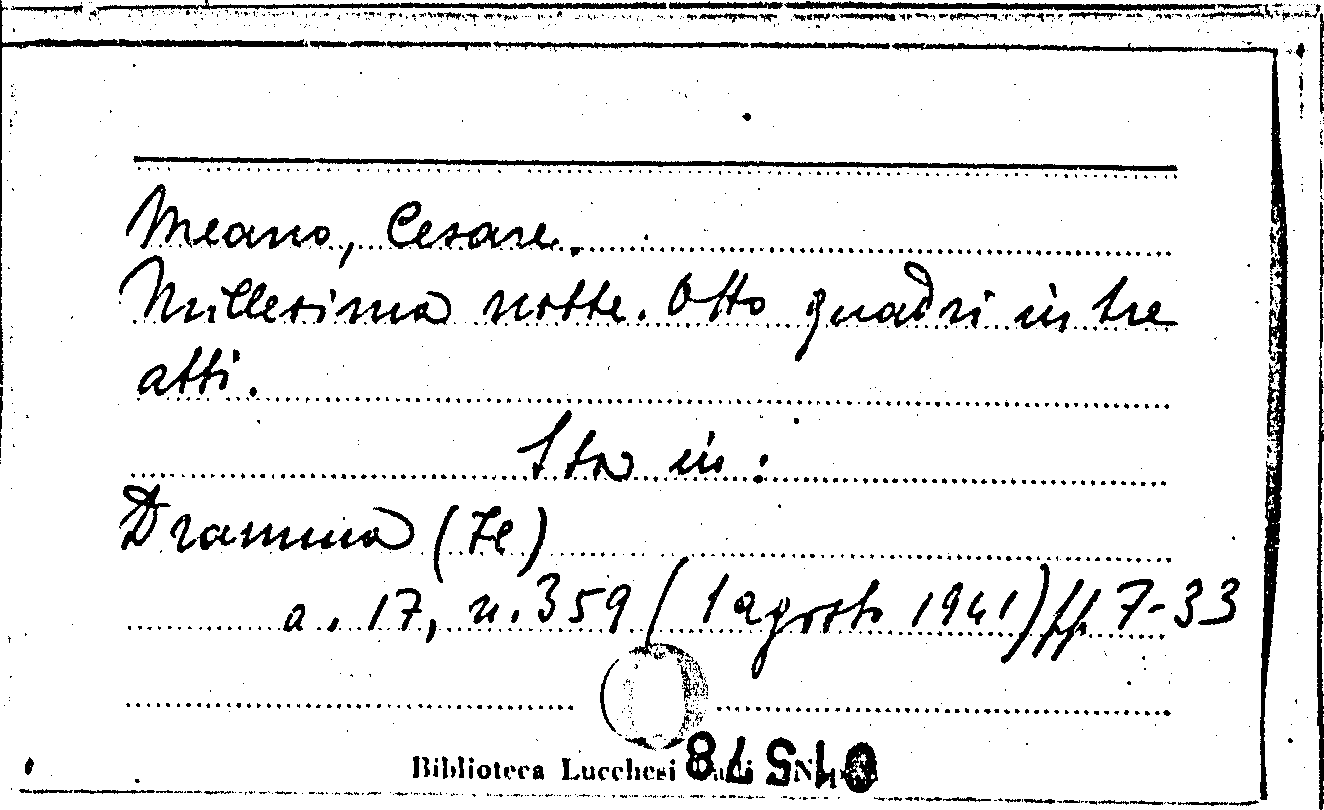 Meano, Cesare.
Millesima notte. Otto quadri in tre
atti.
Sta in:
Dramma (Il)
a. 17, n. 359 (1 agosto 1941) pp. 7-33
Biblioteca Lucchesi